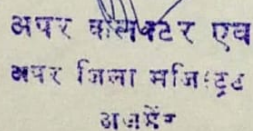 अपर कलेक्टर एवं
अपर जिला मजिस्ट्रेट
अजमेर